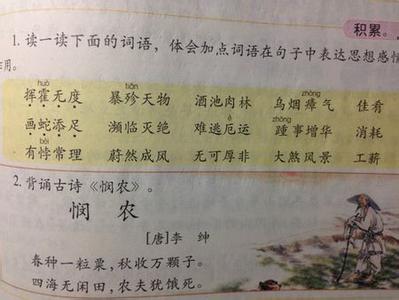 积累。
1. 读一读下面的词语，体会加点词语在句子中表达思想感情
作用。
huò tiǎn zhàng
挥霍无度 暴殄天物 酒池肉林 乌烟瘴气 佳肴
zhǒng
画蛇添足 濒临灭绝 难逃厄运 踵事增华 消耗
bèi
有悖常理 蔚然成风 无可厚非 大煞风景 工薪
2. 背诵古诗《悯农》。
悯 农
[唐]李 绅
春种一粒粟，秋收万颗子。
四海无闲田，农夫犹饿死。